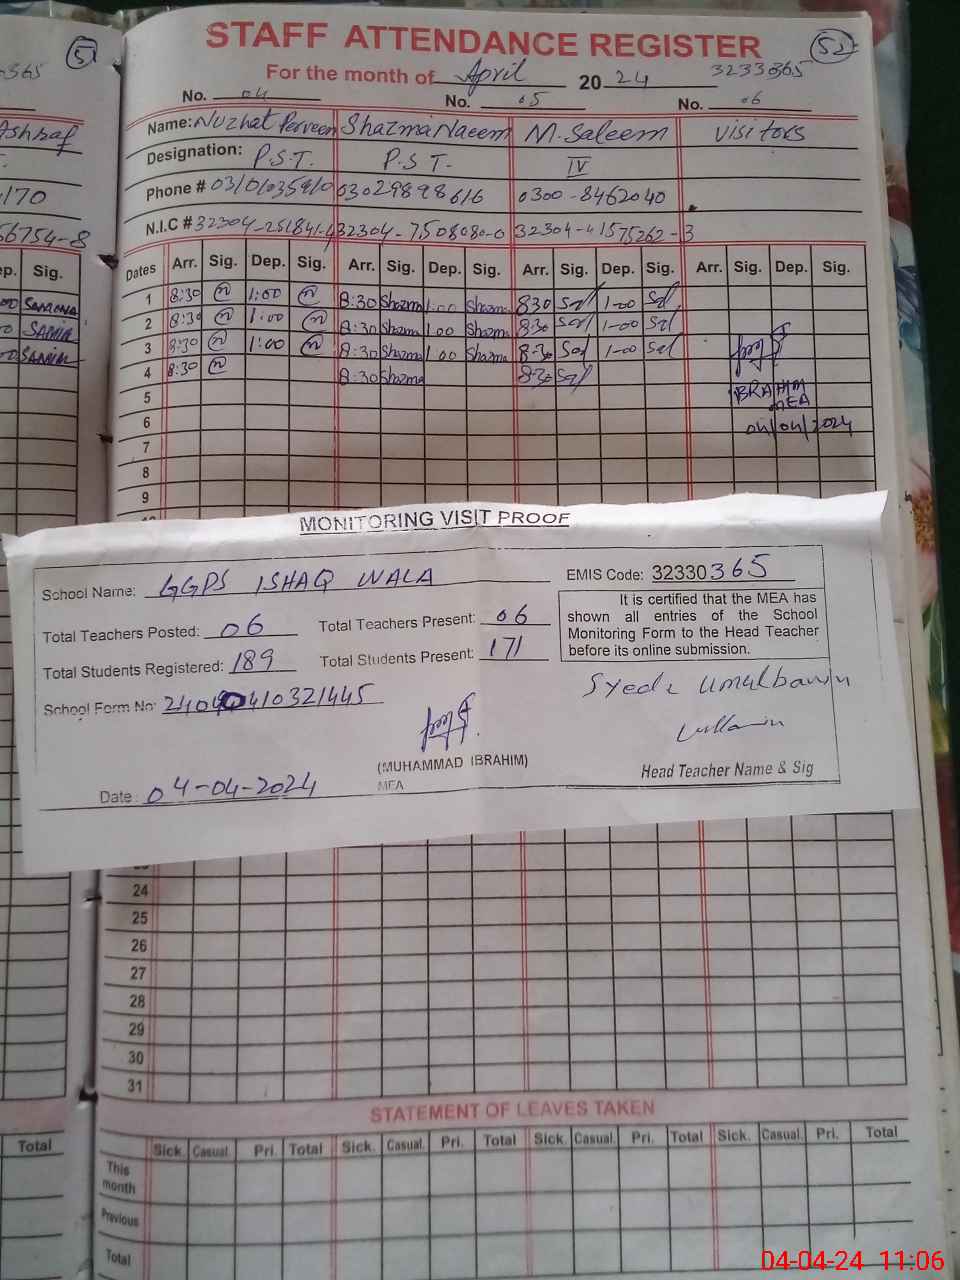 51
365
Ashraf
170
56754-8
ep. Sig.
00 SAMINA
0 SAMINA
00 SAMINA
Total
STAFF ATTENDANCE REGISTER 52
For the month of April 2024 3233365
No. 04 No. 05 No. 06
Name: Nuzhat Perveen Shazma Naeem M. Saleem visitors
Designation: P.S.T. P.S.T. IV
Phone # 03029898616 0300-8462040
N.I.C # 32304-7508080-0 32304-41575262-3
Dates Arr. Sig. Dep. Sig. Arr. Sig. Dep. Sig. Arr. Sig. Dep. Sig. Arr. Sig. Dep. Sig.
1 8:30 1:00 8:30 Shazma 1:00 Shazma 830 1-00
2 8:30 1:00 8:30 Shazma 1:00 Shazma 8:30 1-00
3 8:30 1:00 8:30 Shazma 1:00 Shazma 8:30 1-00
4 8:30 8:30 Shazma 8:30
5 IBRAHIM
MEA
6 04/04/2024
7
8
9
MONITORING VISIT PROOF
School Name: GGPS ISHAQ WALA
EMIS Code: 32330365
Total Teachers Posted: 06 Total Teachers Present: 06
Total Students Registered: 189 Total Students Present: 171
It is certified that the MEA has
shown all entries of the School
Monitoring Form to the Head Teacher
before its online submission.
School Form No: 24040410321445
Syeda Umulbanin
(MUHAMMAD IBRAHIM)
MEA
Head Teacher Name & Sig
Date: 04-04-2024
24
25
26
27
28
29
30
31
STATEMENT OF LEAVES TAKEN
Sick. Casual. Pri. Total Sick. Casual. Pri. Total Sick. Casual. Pri. Total Sick. Casual. Pri. Total
This
month
Previous
Total
04-04-24 11:06